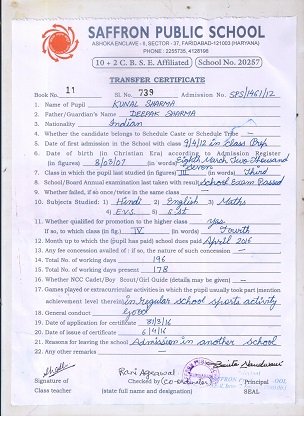 SAFFRON PUBLIC SCHOOL
ASHOKA ENCLAVE - II, SECTOR - 37, FARIDABAD-121003 (HARYANA)
PHONE : 2255735, 4128198
10 + 2 C. B. S. E. Affiliated School No. 20257
TRANSFER CERTIFICATE
Book No. 11 Sl. No. 739 Admission No. SPS/1961/12
1. Name of Pupil KUNAL SHARMA
2. Father/Guardian's Name DEEPAK SHARMA
3. Nationality Indian
4. Whether the candidate belongs to Schedule Caste or Schedule Tribe -
5. Date of first admission in the School with class 9/4/12 in Class Prep
6. Date of birth (in Christian Era) according to Admission Register
(in figures) 8/03/07 (in words) Eighth March Two Thousand Seven
7. Class in which the pupil last studied (in figures) III (in words) Third
8. School/Board Annual examination last taken with result School Exam Passed
9. Whether failed, if so once/twice in the same class -
10. Subjects Studied : 1. Hindi 2. English 3. Maths
4. E.V.S. 5. S.St
11. Whether qualified for promotion to the higher class Yes
If so, to which class (in fig.) IV (in words) Fourth
12. Month up to which the (pupil has paid) school dues paid April 2016
13. Any fee concession availed of : if so, the nature of such concession -
14. Total No. of working days 196
15. Total No. of working days present 178
16. Whether NCC Cadet/Boy Scout/Girl Guide (details may be given) -
17. Games played or extracurricular activities in which the pupil usually took part (mention
achievement level therein) in regular school sports activity
18. General conduct Good
19. Date of application for certificate 31/3/16
20. Date of issue of certificate 6/4/16
21. Reasons for leaving the school Admission in another school
22. Any other remarks -
Ravi Agrawal
Signature of Checked by (Co-ordinator) Principal
Class teacher (state full name and designation) SEAL